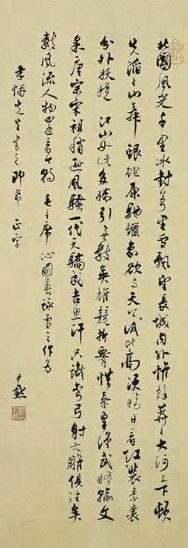 北國風光千里冰封萬里雪飄望長城内外惟餘莽莽大河上下頓
失滔滔山舞銀蛇原馳蠟象欲与天公试比高須晴日看红裝素裹
分外妖嬈江山如此多嬌引无數英雄競折腰惜秦皇漢武略輸文
采唐宗宋祖稍遜風騷一代天驕成吉思汗只識彎弓射大雕俱往矣
數風流人物還看今朝 毛主席沁園春詠雪之作为
先生書之即希 正字
尹默